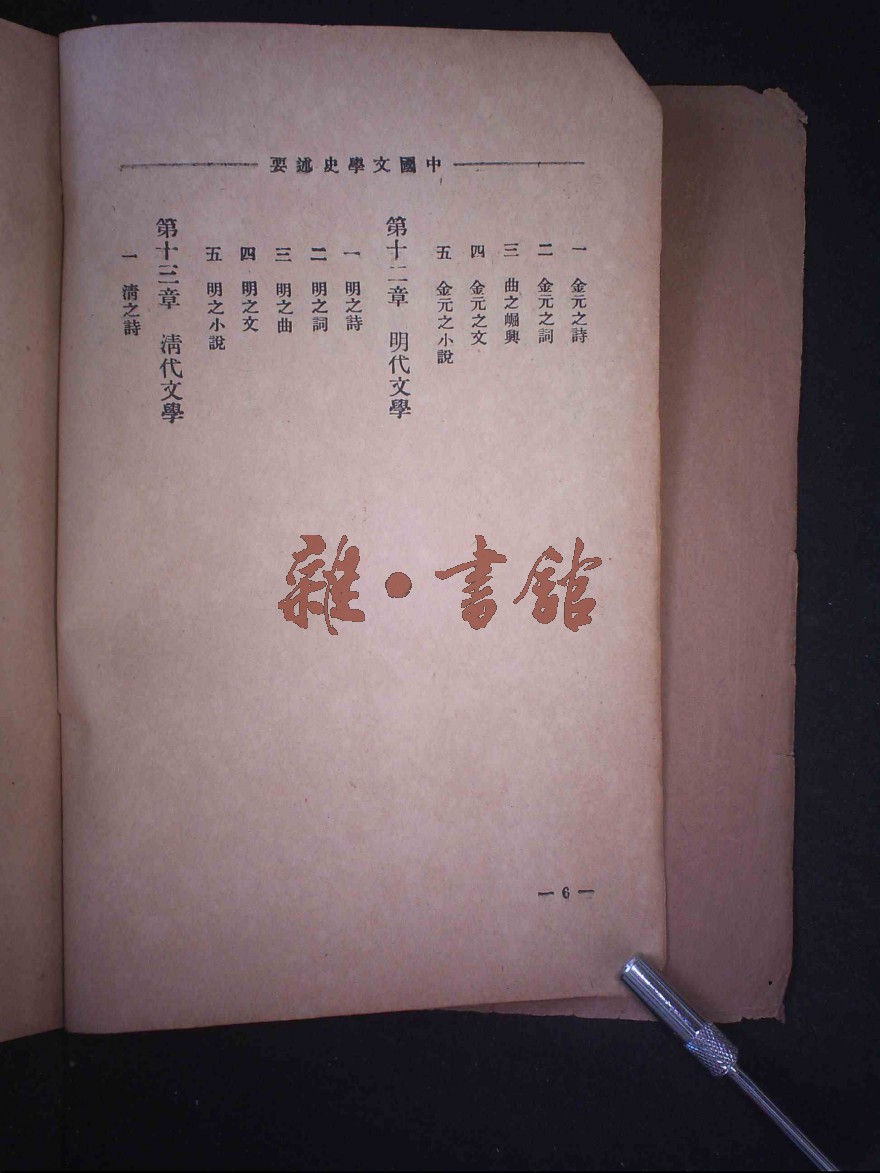 中國文學史述要
一 金元之詩
二 金元之詞
三 曲之崛興
四 金元之文
五 金元之小說
第十二章 明代文學
一 明之詩
二 明之詞
三 明之曲
四 明之文
五 明之小說
第十三章 淸代文學
一 淸之詩
— 6 —
雜·書館